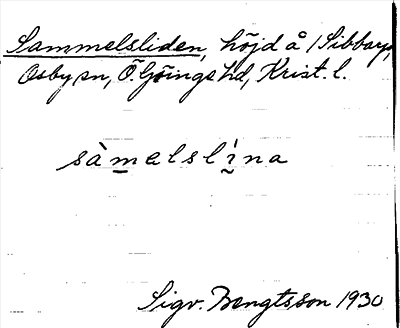 Sammelsliden, höjd å 1 Sibbarp,
Osby sn, Ö. Göinge hd, Krist. l.
sàmelslína
Sigv. Bengtsson 1930